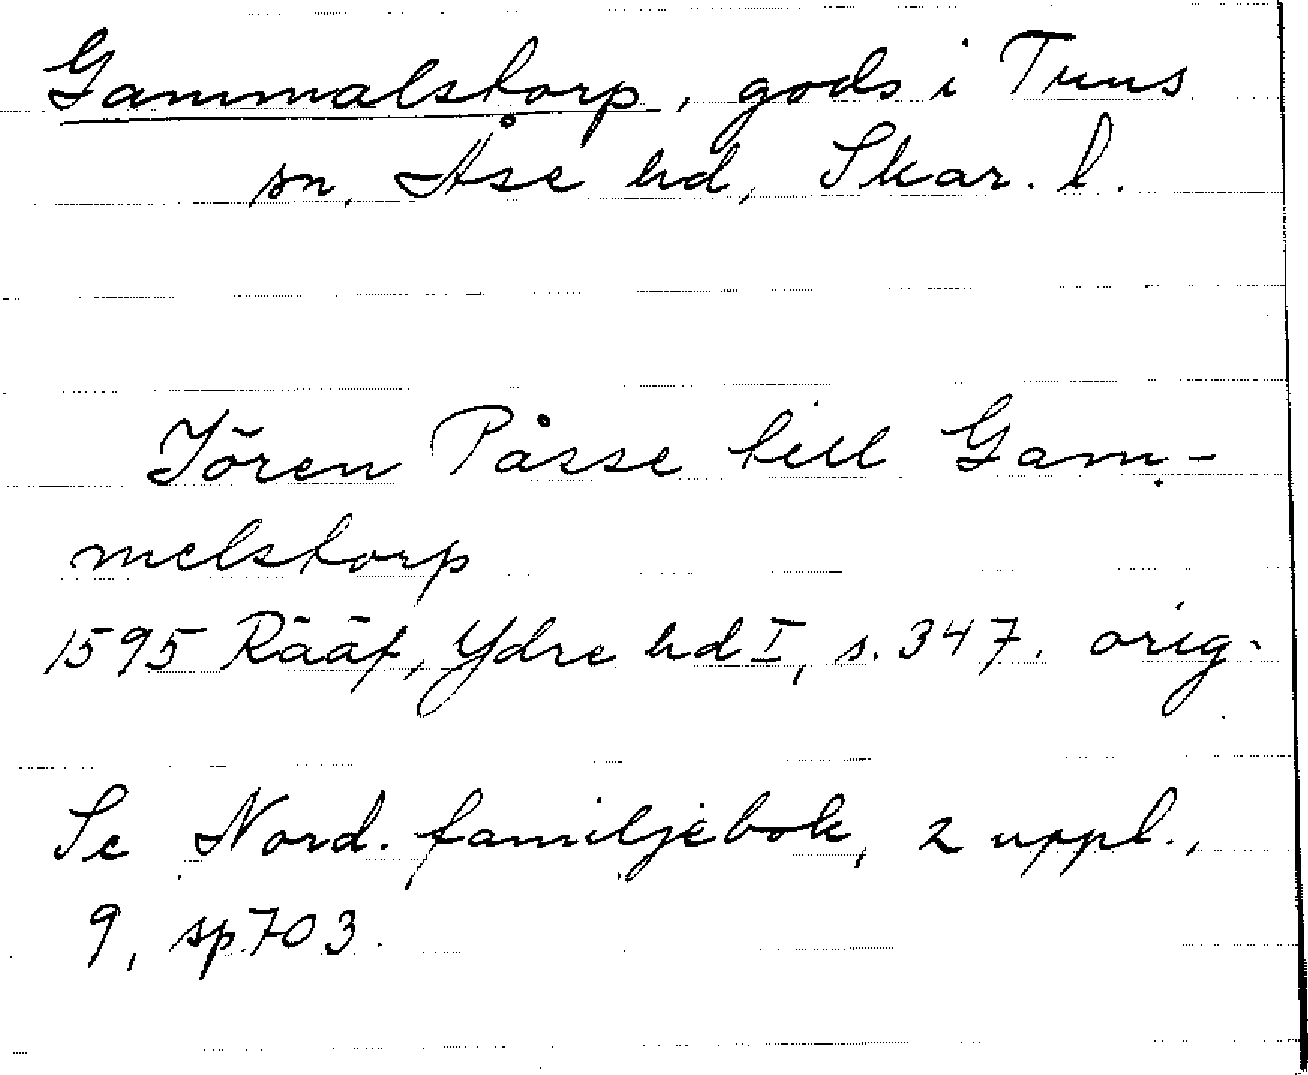 Gammalstorp, gods i Tuns
sn, Åse hd, Skar. l.
Jören Påsse till Gam-
melstorp
1595 Rääf, Ydre hd I, s. 347. orig.
Se Nord. familjebok, 2 uppl.,
9, sp. 703.